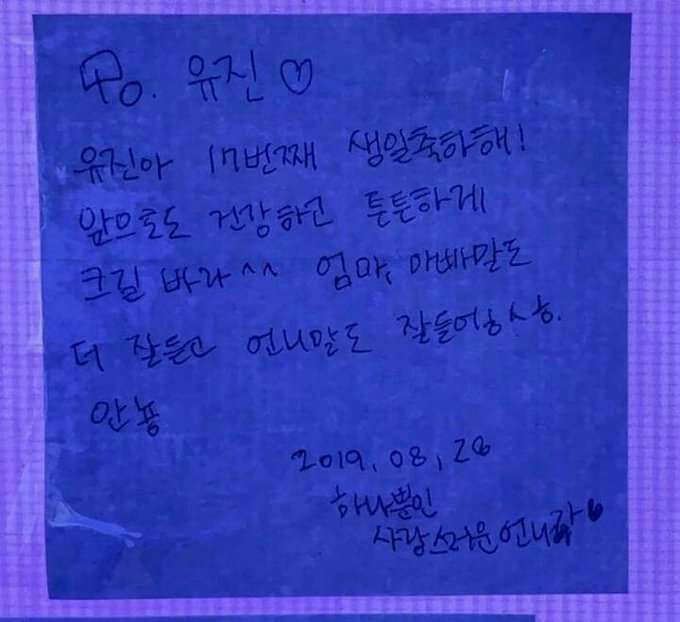 To. 유진♡
유진아 17번째 생일축하해!
앞으로도 건강하고 튼튼하게
크길 바라^^ 엄마, 아빠말도
더 잘듣고 언니말도 잘들어ㅎㅅㅎ.
안뇽
2019.08,28
하나뿐인
사랑스러운언니가